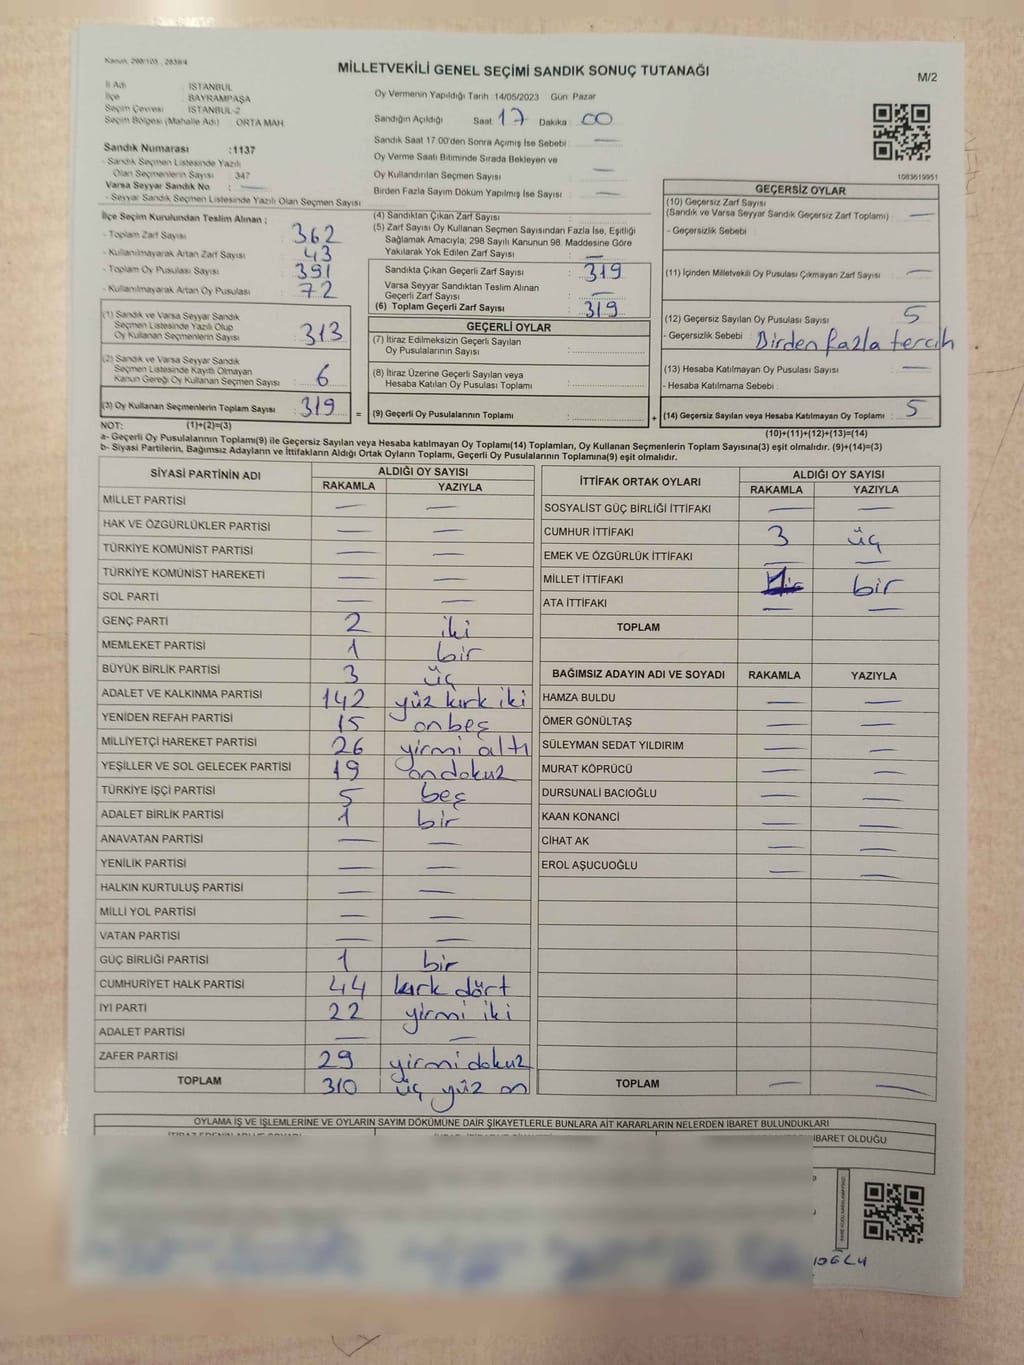 Kanun, 298/105 , 2839/4
MİLLETVEKİLİ GENEL SEÇİMİ SANDIK SONUÇ TUTANAĞI
M/2
İl Adı : İSTANBUL
İlçe : BAYRAMPAŞA
Seçim Çevresi : İSTANBUL-2
Seçim Bölgesi (Mahalle Adı) : ORTA MAH.
Sandık Numarası :1137
- Sandık Seçmen Listesinde Yazılı
Olan Seçmenlerin Sayısı : 347
Varsa Seyyar Sandık No : —
- Seyyar Sandık Seçmen Listesinde Yazılı Olan Seçmen Sayısı
Oy Vermenin Yapıldığı Tarih :14/05/2023 Gün: Pazar
Sandığın Açıldığı Saat: 17 Dakika : 00
Sandık Saat 17:00'den Sonra Açımış İse Sebebi : —
Oy Verme Saati Bitiminde Sırada Bekleyen ve
Oy Kullandırılan Seçmen Sayısı : —
Birden Fazla Sayım Döküm Yapılmış İse Sayısı : —
1083619951
İlçe Seçim Kurulundan Teslim Alınan ;
- Toplam Zarf Sayısı : 362
- Kullanılmayarak Artan Zarf Sayısı : 43
- Toplam Oy Pusulası Sayısı : 391
- Kullanılmayarak Artan Oy Pusulası : 72
(1) Sandık ve Varsa Seyyar Sandık
Seçmen Listesinde Yazılı Olup
Oy Kullanan Seçmenlerin Sayısı : 313
(2) Sandık ve Varsa Seyyar Sandık
Seçmen Listesinde Kayıtlı Olmayan
Kanun Gereği Oy Kullanan Seçmen Sayısı : 6
(3) Oy Kullanan Seçmenlerin Toplam Sayısı : 319
(4) Sandıktan Çıkan Zarf Sayısı :
(5) Zarf Sayısı Oy Kullanan Seçmen Sayısından Fazla İse, Eşitliği
Sağlamak Amacıyla; 298 Sayılı Kanunun 98. Maddesine Göre
Yakılarak Yok Edilen Zarf Sayısı : —
Sandıkta Çıkan Geçerli Zarf Sayısı : 319
Varsa Seyyar Sandıktan Teslim Alınan
Geçerli Zarf Sayısı : —
(6) Toplam Geçerli Zarf Sayısı : 319
GEÇERLİ OYLAR
(7) İtiraz Edilmeksizin Geçerli Sayılan
Oy Pusulalarının Sayısı :
(8) İtiraz Üzerine Geçerli Sayılan veya
Hesaba Katılan Oy Pusulası Toplamı :
= (9) Geçerli Oy Pusulalarının Toplamı : +
GEÇERSİZ OYLAR
(10) Geçersiz Zarf Sayısı
(Sandık ve Varsa Seyyar Sandık Geçersiz Zarf Toplamı) : —
- Geçersizlik Sebebi
(11) İçinden Milletvekili Oy Pusulası Çıkmayan Zarf Sayısı : —
(12) Geçersiz Sayılan Oy Pusulası Sayısı : 5
- Geçersizlik Sebebi : Birden fazla tercih
(13) Hesaba Katılmayan Oy Pusulası Sayısı : —
- Hesaba Katılmama Sebebi :
(14) Geçersiz Sayılan veya Hesaba Katılmayan Oy Toplamı : 5
NOT: (1)+(2)=(3)
(10)+(11)+(12)+(13)=(14)
a- Geçerli Oy Pusulalarının Toplamı(9) ile Geçersiz Sayılan veya Hesaba katılmayan Oy Toplamı(14) Toplamları, Oy Kullanan Seçmenlerin Toplam Sayısına(3) eşit olmalıdır. (9)+(14)=(3)
b- Siyasi Partilerin, Bağımsız Adayların ve İttifakların Aldığı Ortak Oyların Toplamı, Geçerli Oy Pusulalarının Toplamına(9) eşit olmalıdır.
SİYASİ PARTİNİN ADI ALDIĞI OY SAYISI
RAKAMLA YAZIYLA
MİLLET PARTİSİ — —
HAK VE ÖZGÜRLÜKLER PARTİSİ — —
TÜRKİYE KOMÜNİST PARTİSİ — —
TÜRKİYE KOMÜNİST HAREKETİ — —
SOL PARTİ — —
GENÇ PARTİ 2 iki
MEMLEKET PARTİSİ 1 bir
BÜYÜK BİRLİK PARTİSİ 3 üç
ADALET VE KALKINMA PARTİSİ 142 yüz kırk iki
YENİDEN REFAH PARTİSİ 15 onbeş
MİLLİYETÇİ HAREKET PARTİSİ 26 yirmi altı
YEŞİLLER VE SOL GELECEK PARTİSİ 19 ondokuz
TÜRKİYE İŞÇİ PARTİSİ 5 beş
ADALET BİRLİK PARTİSİ 1 bir
ANAVATAN PARTİSİ — —
YENİLİK PARTİSİ — —
HALKIN KURTULUŞ PARTİSİ — —
MİLLİ YOL PARTİSİ — —
VATAN PARTİSİ — —
GÜÇ BİRLİĞİ PARTİSİ 1 bir
CUMHURİYET HALK PARTİSİ 44 kırk dört
İYİ PARTİ 22 yirmi iki
ADALET PARTİSİ — —
ZAFER PARTİSİ 29 yirmi dokuz
TOPLAM 310 üç yüz on
İTTİFAK ORTAK OYLARI ALDIĞI OY SAYISI
RAKAMLA YAZIYLA
SOSYALİST GÜÇ BİRLİĞİ İTTİFAKI — —
CUMHUR İTTİFAKI 3 üç
EMEK VE ÖZGÜRLÜK İTTİFAKI — —
MİLLET İTTİFAKI 1 bir
ATA İTTİFAKI — —
TOPLAM
BAĞIMSIZ ADAYIN ADI VE SOYADI RAKAMLA YAZIYLA
HAMZA BULDU — —
ÖMER GÖNÜLTAŞ — —
SÜLEYMAN SEDAT YILDIRIM — —
MURAT KÖPRÜCÜ — —
DURSUNALİ BACIOĞLU — —
KAAN KONANCİ — —
CİHAT AK — —
EROL AŞUCUOĞLU — —
TOPLAM — —
OYLAMA İŞ VE İŞLEMLERİNE VE OYLARIN SAYIM DÖKÜMÜNE DAİR ŞİKAYETLERLE BUNLARA AİT KARARLARIN NELERDEN İBARET BULUNDUKLARI
İBARET OLDUĞU